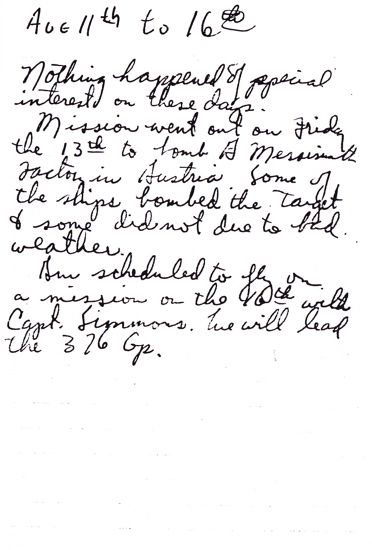 Aug 11th to 16th
Nothing happened of special
interest on these days.
Mission went out on Friday
the 13th to bomb A
Factory in Austria. Some of
the ships bombed the Target
& some did not due to bad
weather.
Am scheduled to fly on
a mission on the 16th with
Capt. Simmons. We will lead
the 376 Gp.